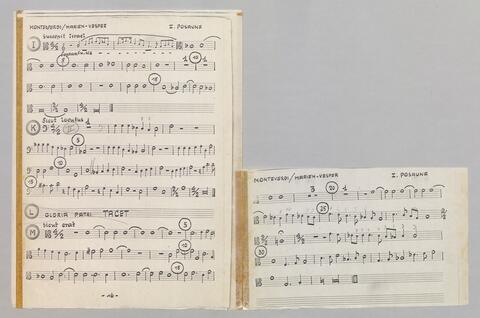 MONTEVERDI/MARIEN-VESPER I. POSAUNE
I Suscepit Israel
5
10
15
K Sicut locutus
5
10
15
L GLORIA PATRI TACET
M Sicut erat
5
10
15
MONTEVERDI/MARIEN-VESPER I. POSAUNE
3 20 1
25
30